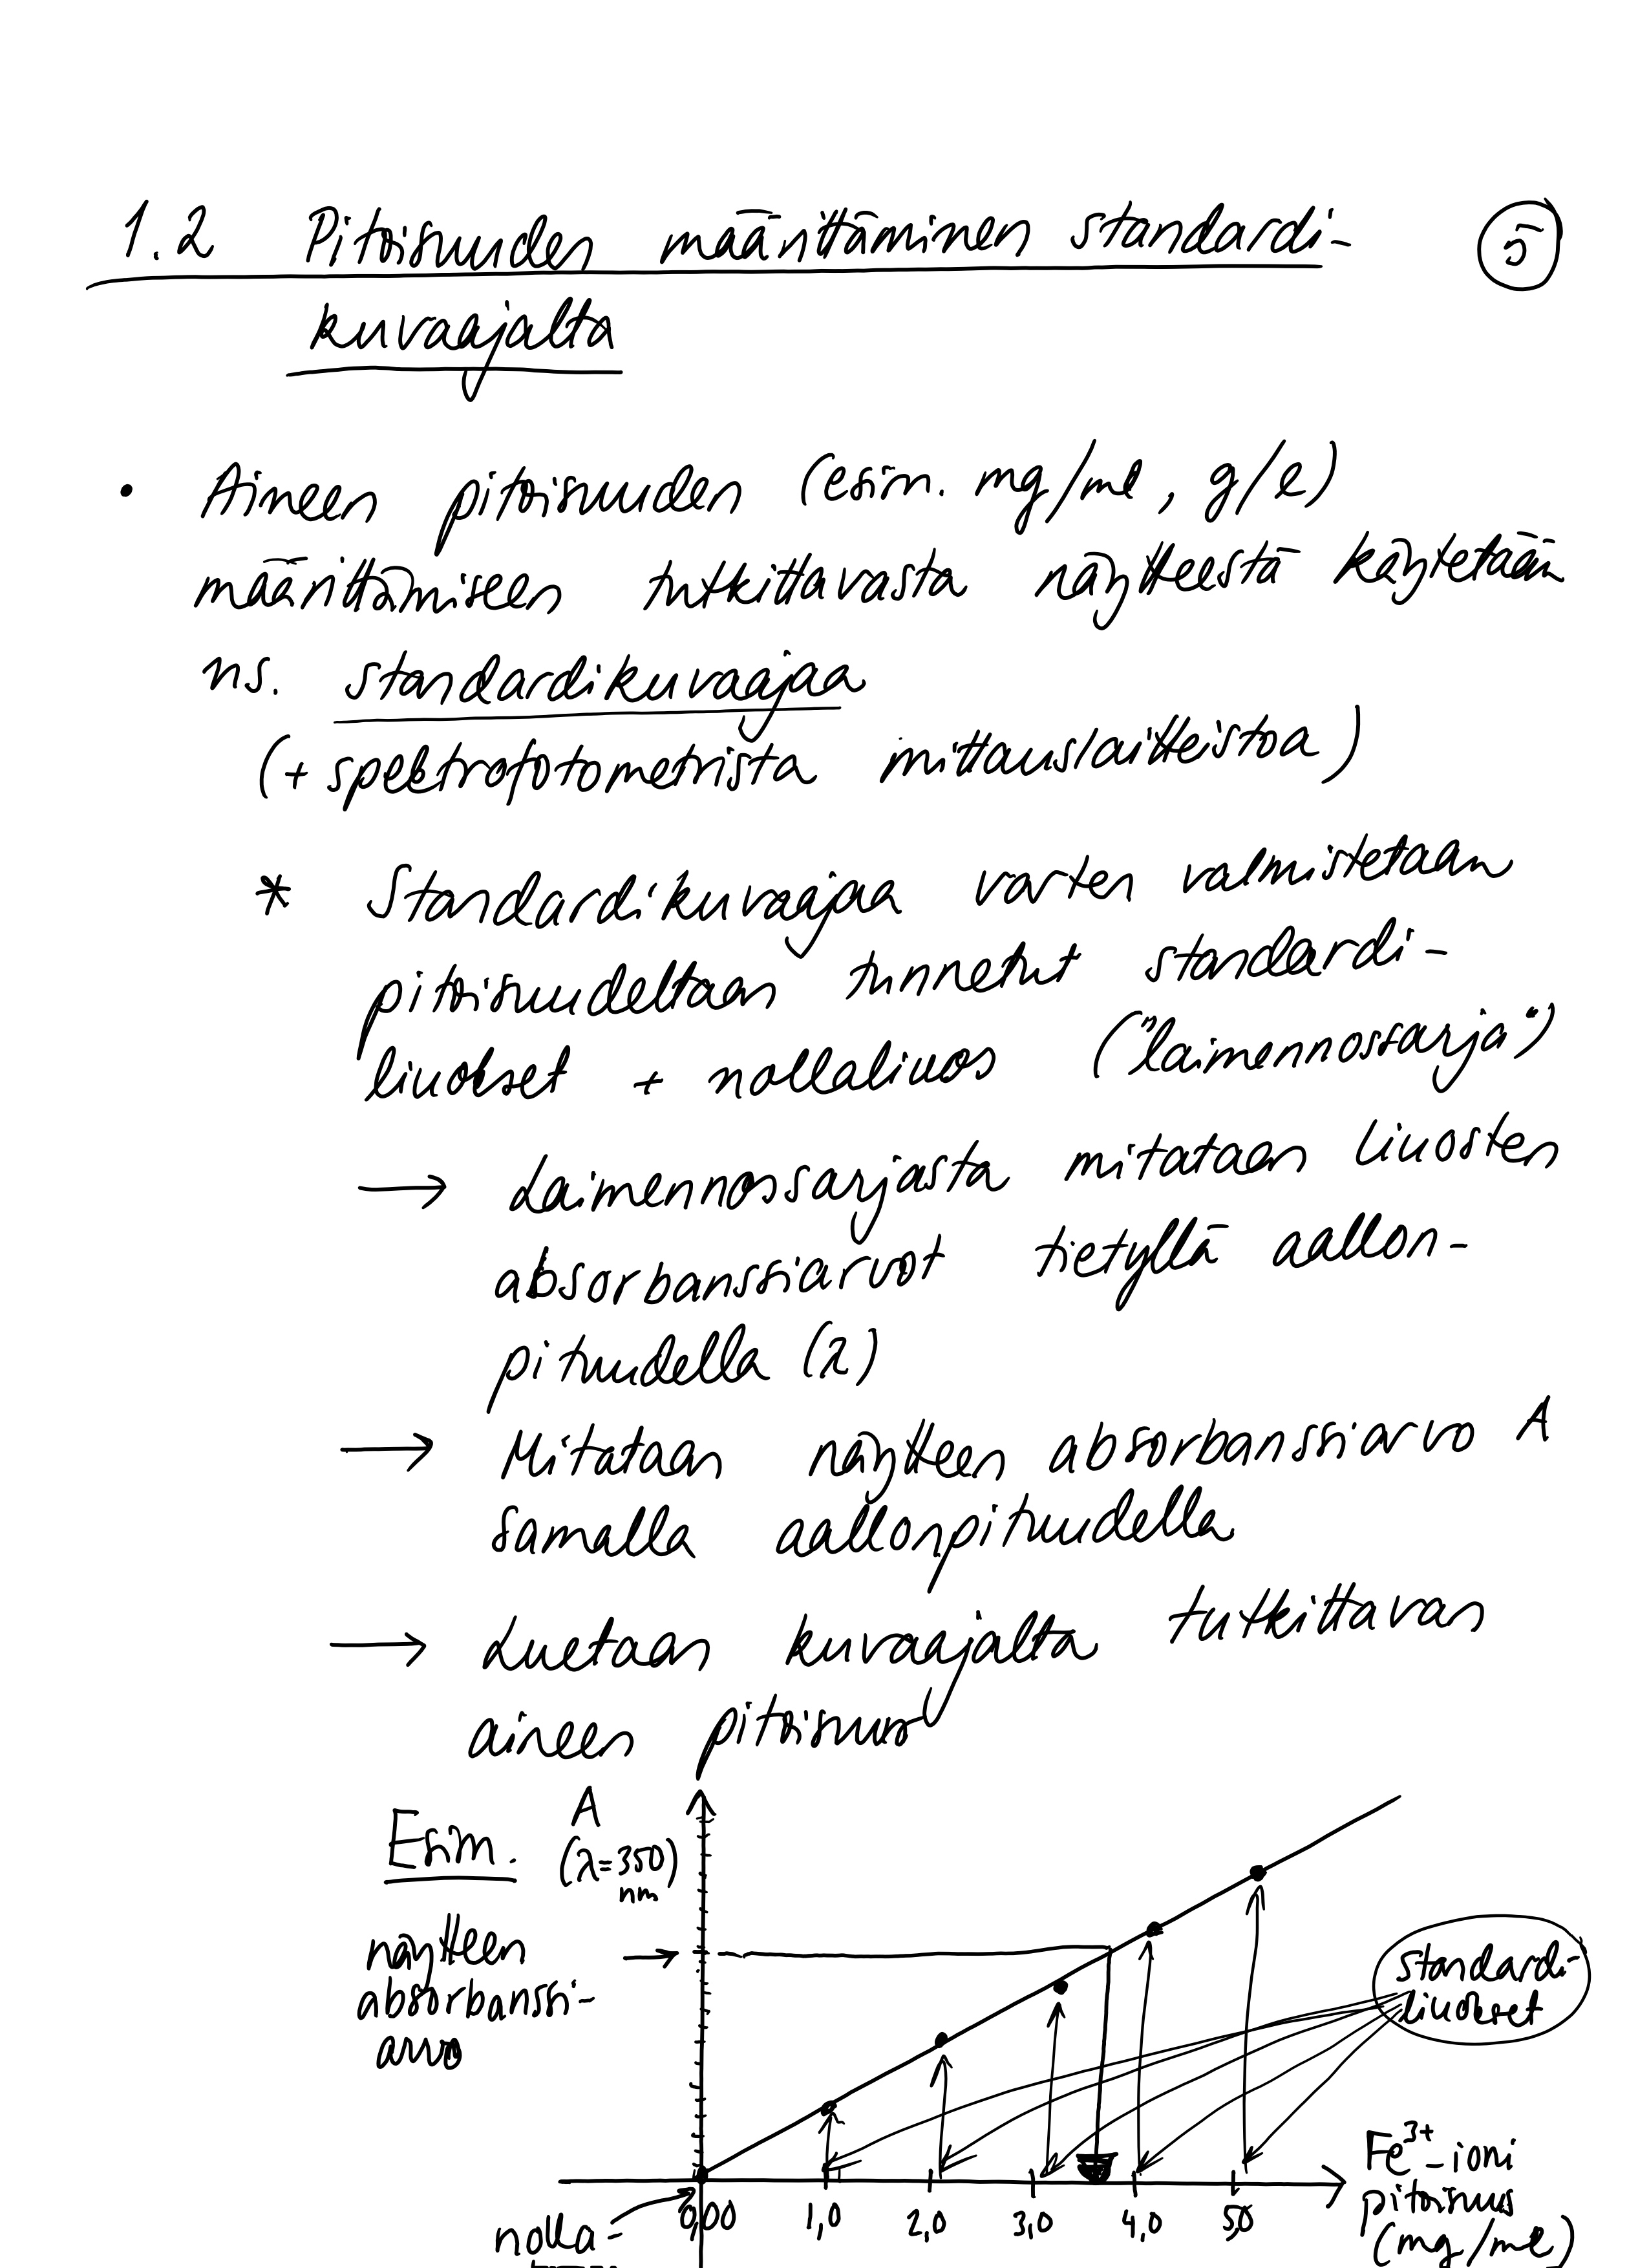 1.2 Pitoisuuden määrittäminen standardi-
5
kuvaajalta
• Aineen pitoisuuden (esim. mg/ml, g/l)
määrittämiseen tutkittavasta näytteestä käytetään
ns. standardikuvaajaa
(+ spektrofotometrista mittauslaitteistoa)
* Standardikuvaajaa varten valmistetaan
pitoisuudeltaan tunnetut standardi-
liuokset + nollaliuos ("laimennossarja")
→ Laimennossarjasta mitataan liuosten
absorbanssiarvot tietyllä aallon-
pituudella (λ)
→ Mitataan näytteen absorbanssiarvo A
samalla aallonpituudella
→ Luetaan kuvaajalta tutkittavan
aineen pitoisuus
Esim.
A
(λ=350
nm)
näytteen →
absorbanssi-
arvo
standardi-
liuokset
0,00 1,0 2,0 3,0 4,0 5,0
Fe³⁺-ioni
pitoisuus
(mg/ml)
nolla-